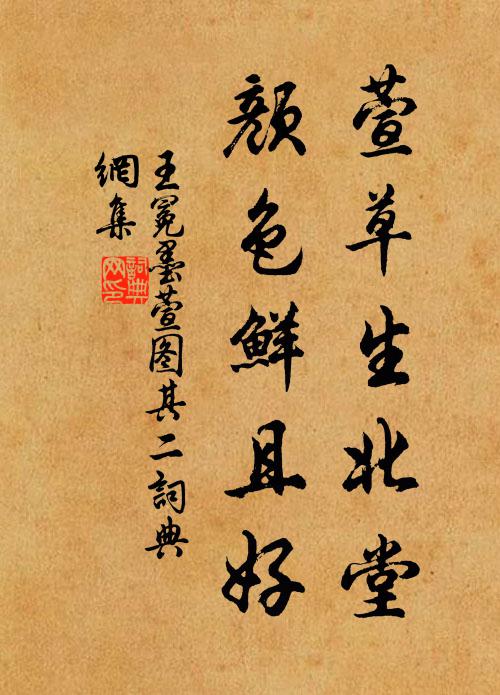 萱草生北堂
顏色鮮且好
王冕墨萱图其二詞典
網集
詞典
网印